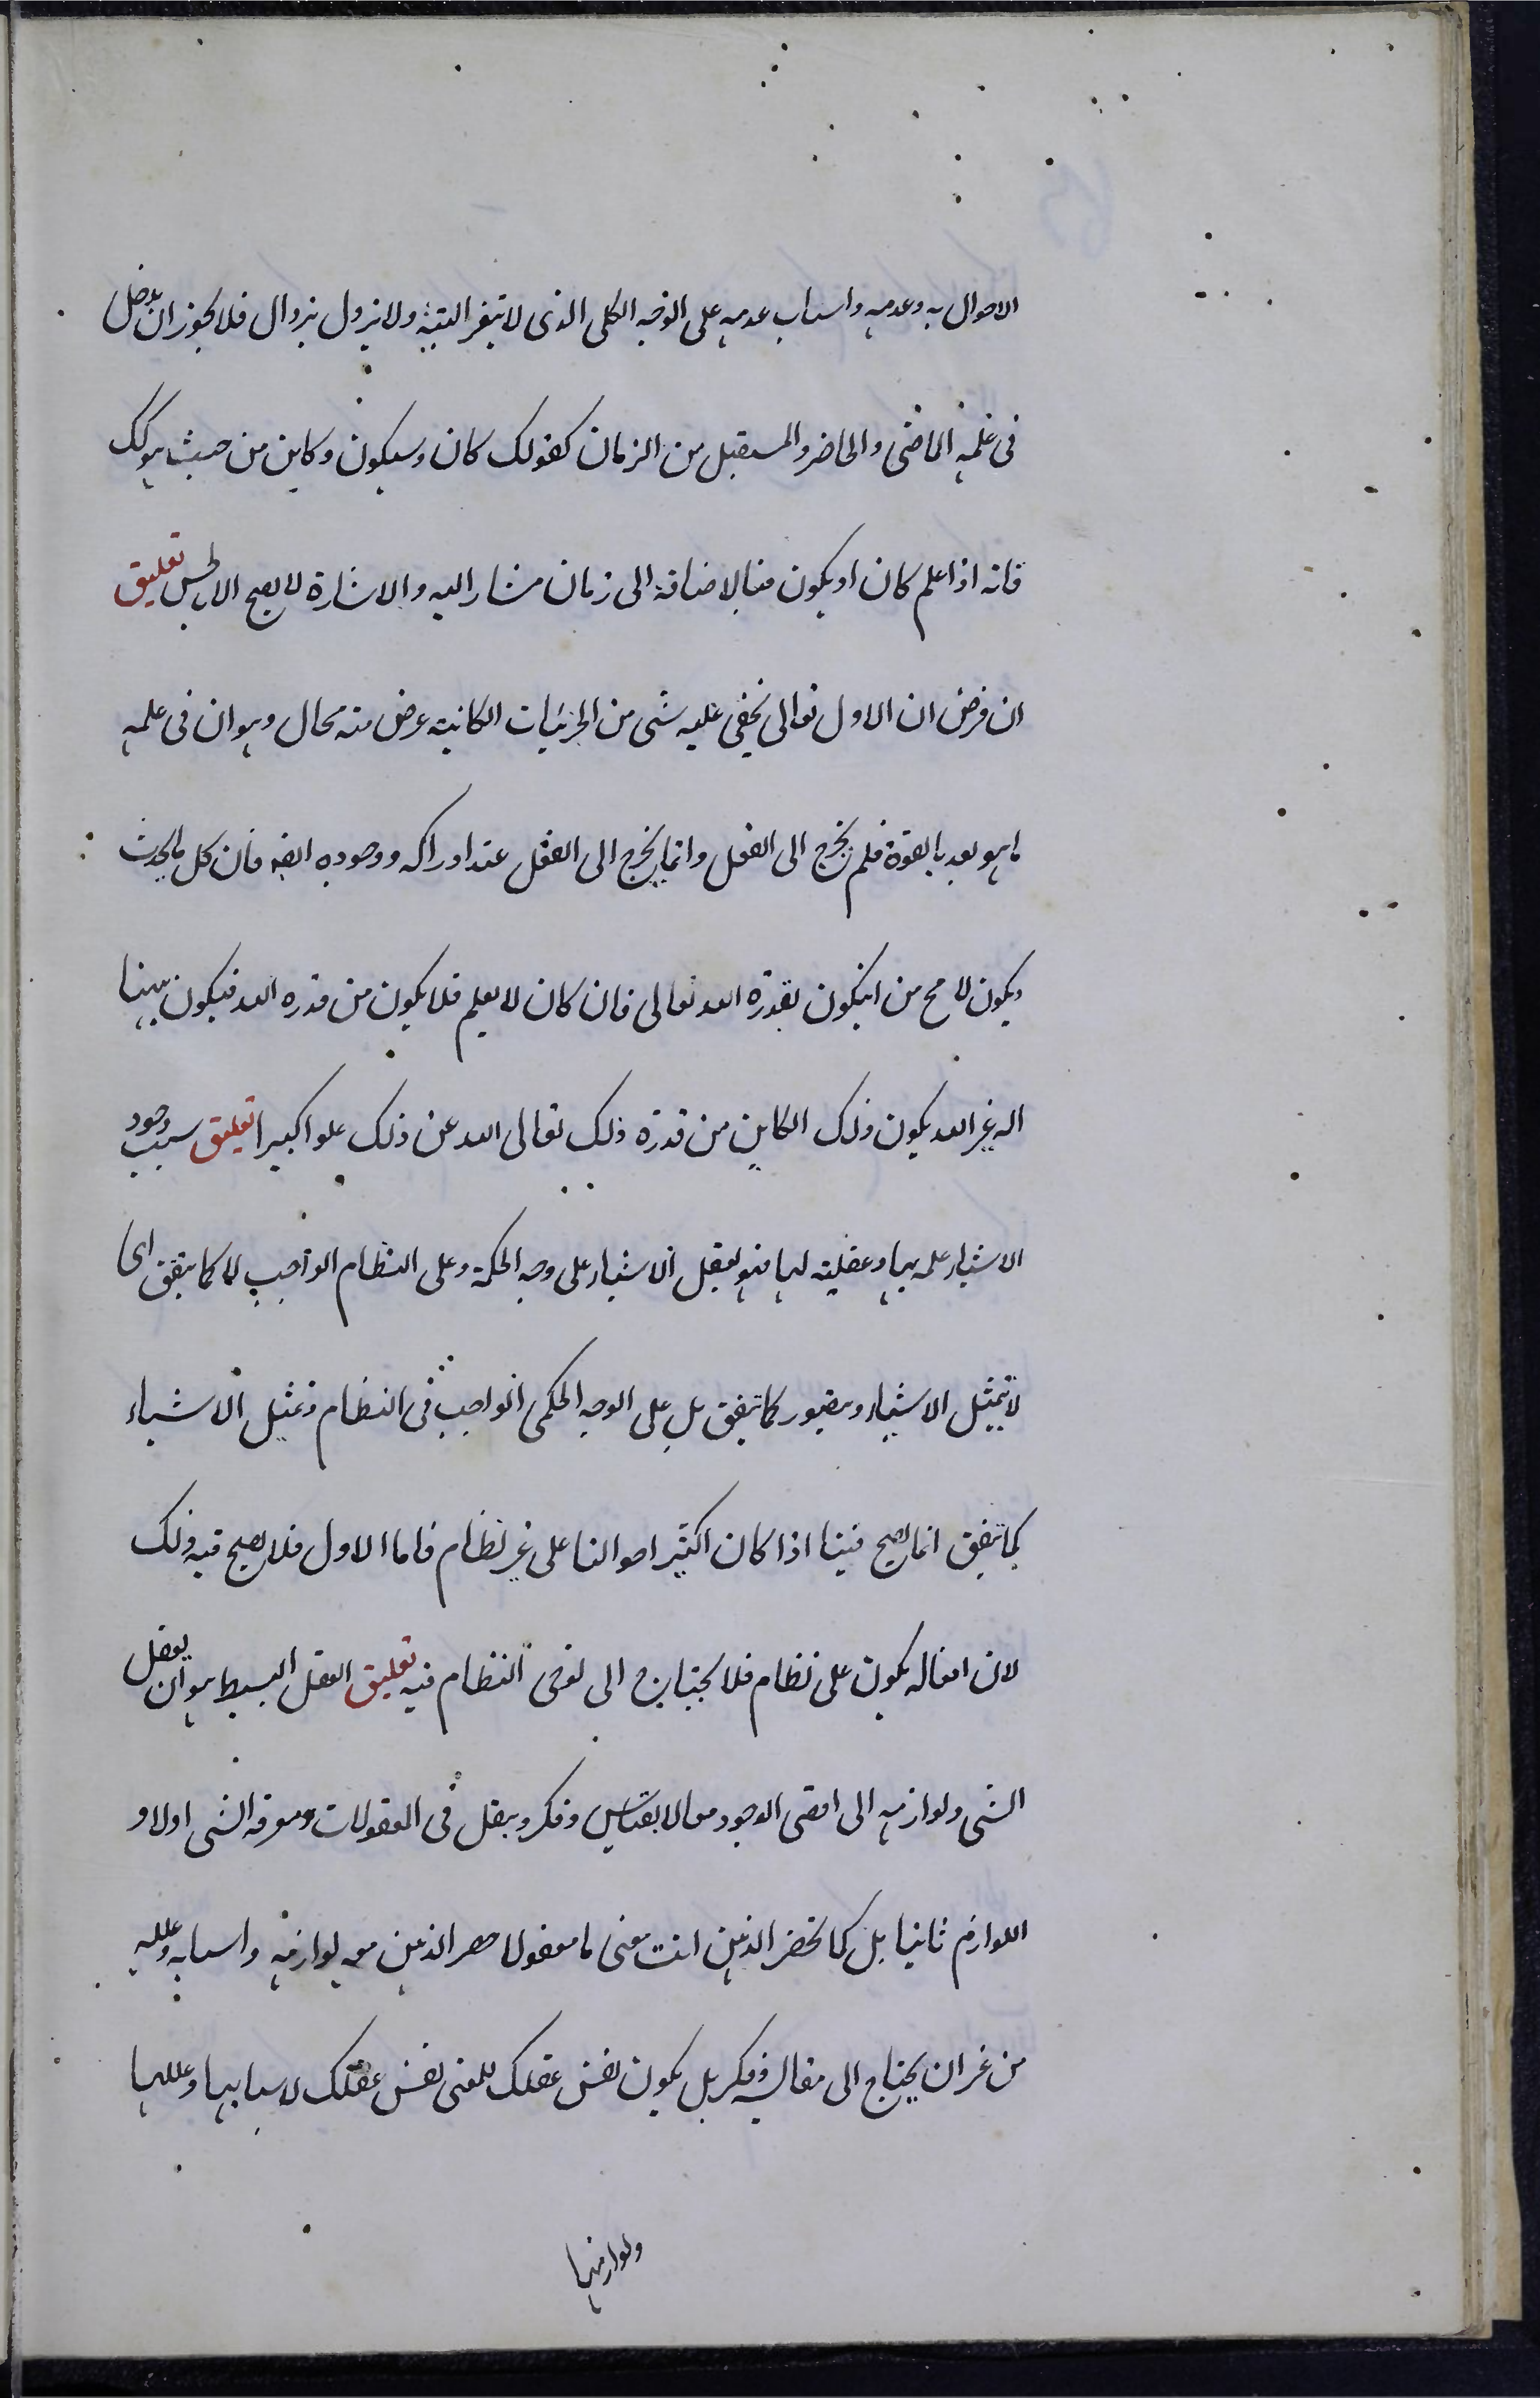 الاحوال به وعدمه واسباب عدمه على الوجه الكلى الذى لا يتغير البتة ولا يزول بزوال فلا يجوز ان يدخل
فى علمه الماضى والحاضر والمستقبل من الزمان كقولك كان وسيكون وكاين من حيث هو كك
فانه اذا علم كان او يكون فبالاضافة الى زمان مشار اليه والاشارة لا يصح الا بالحس تعليق
ان فرض ان الاول تعالى يخفى عليه شى من الجزئيات الكاينة عرض منه محال وهو ان فى علمه
ما هو بعد بالقوة فلم يخرج الى الفعل وانما يخرج الى الفعل عند ادراكه ووجوده ايضه فان كل ما يحدث
ويكون لا مح من انيكون بقدرة الله تعالى فان كان لا يعلم فلا يكون من قدره الله فيكون ههنا
اله غير الله يكون ذلك الكاين من قدرة ذلك تعالى الله عن ذلك علوا كبيرا تعليق سبب وجود
الاشياء علمه بها وعقليته لها فهو يعقل الاشياء على وجه الحكمة وعلى النظام الواجب لا كما يتفق اى
لا يتمثل الاشياء ويتصور كما يتفق بل على الوجه الحكمى الواجب فى النظام وتمثيل الاشياء
كما يتفق انما يصح فينا اذا كان اكثير احوالنا على غير نظام فاما الاول فلا يصح فيه ذلك
لان افعاله يكون على نظام فلا يحتاج الى توخى النظام فيه تعليق العقل البسيط هو ان يعقل
الشى ولوازمه الى اقصى الوجود معا لا بقياس وفكر وينقل فى المعقولات ومعرفه الشى اولا و
اللوازم ثانيا بل كما تحضر الذهن انت معنى ما معقولا حضر الذهن معه لوازمه واسبابه وعلله
من غير ان يحتاج الى مقايسه وفكر بل يكون نفس عقلك للمعنى نفس عقلك لاسبابها وعللها
ولوازمها